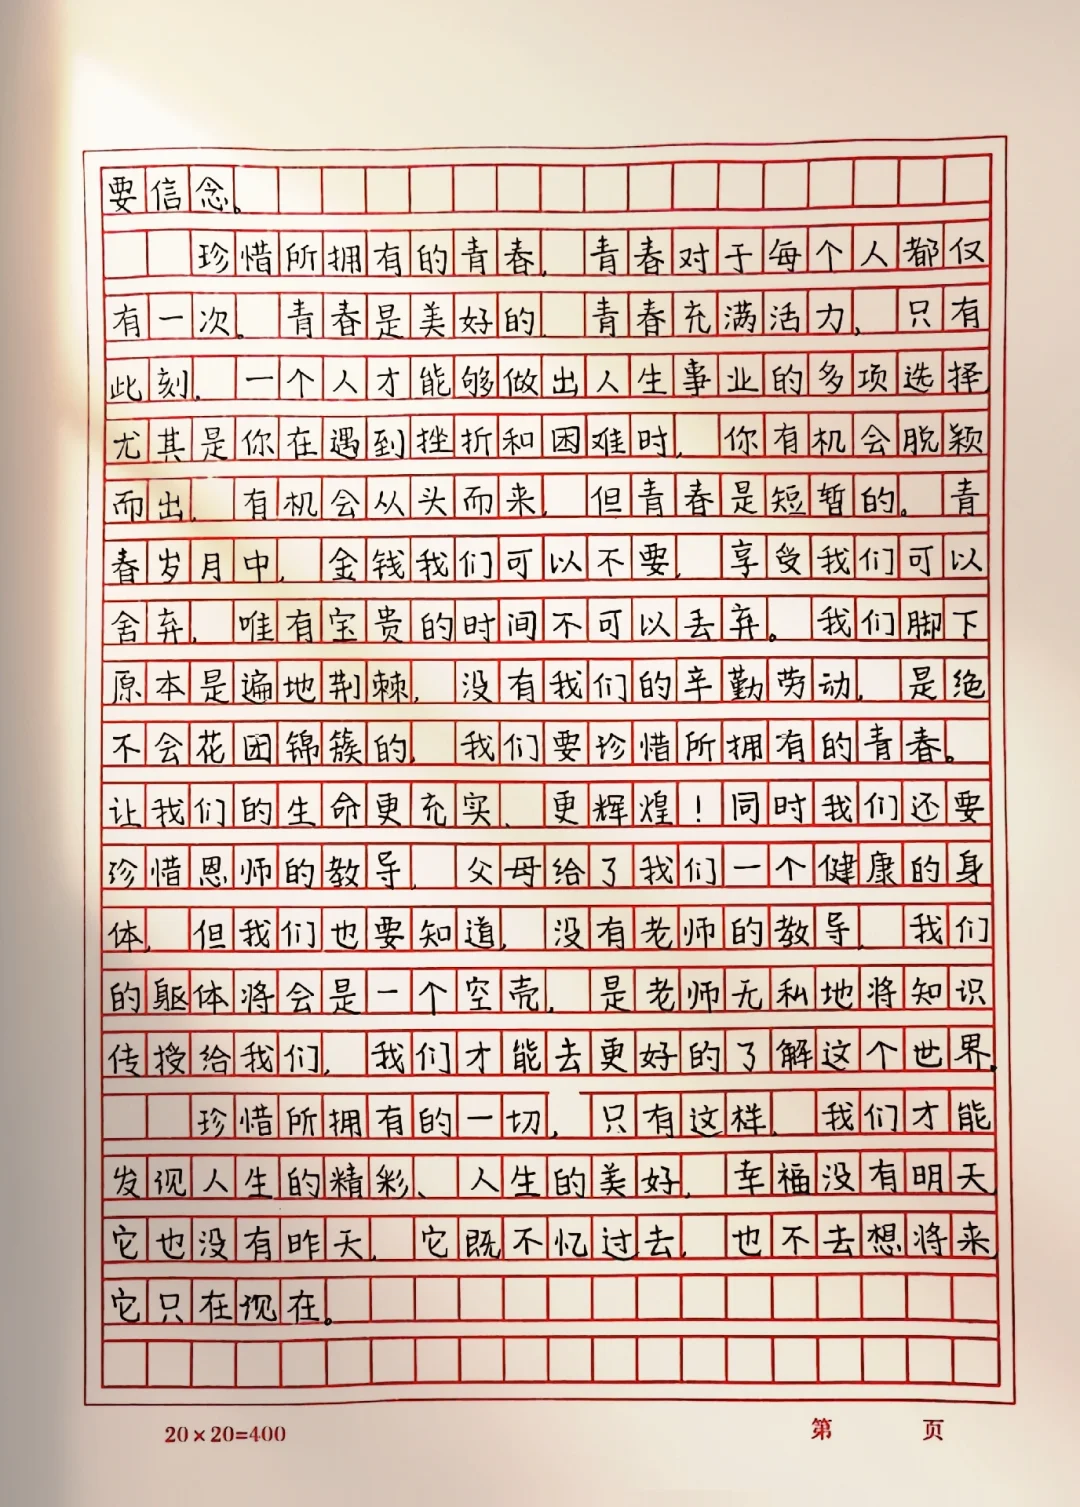 要信念。
珍惜所拥有的青春，青春对于每个人都仅
有一次。青春是美好的，青春充满活力，只有
此刻，一个人才能够做出人生事业的多项选择，
尤其是你在遇到挫折和困难时，你有机会脱颖
而出，有机会从头而来，但青春是短暂的。青
春岁月中，金钱我们可以不要，享受我们可以
舍弃，唯有宝贵的时间不可以丢弃。我们脚下
原本是遍地荆棘，没有我们的辛勤劳动，是绝
不会花团锦簇的，我们要珍惜所拥有的青春。
让我们的生命更充实、更辉煌！同时我们还要
珍惜恩师的教导，父母给了我们一个健康的身
体，但我们也要知道，没有老师的教导，我们
的躯体将会是一个空壳，是老师无私地将知识
传授给我们，我们才能去更好的了解这个世界。
珍惜所拥有的一切，只有这样，我们才能
发现人生的精彩、人生的美好，幸福没有明天，
它也没有昨天，它既不忆过去，也不去想将来，
它只在现在。
20×20=400
第 页